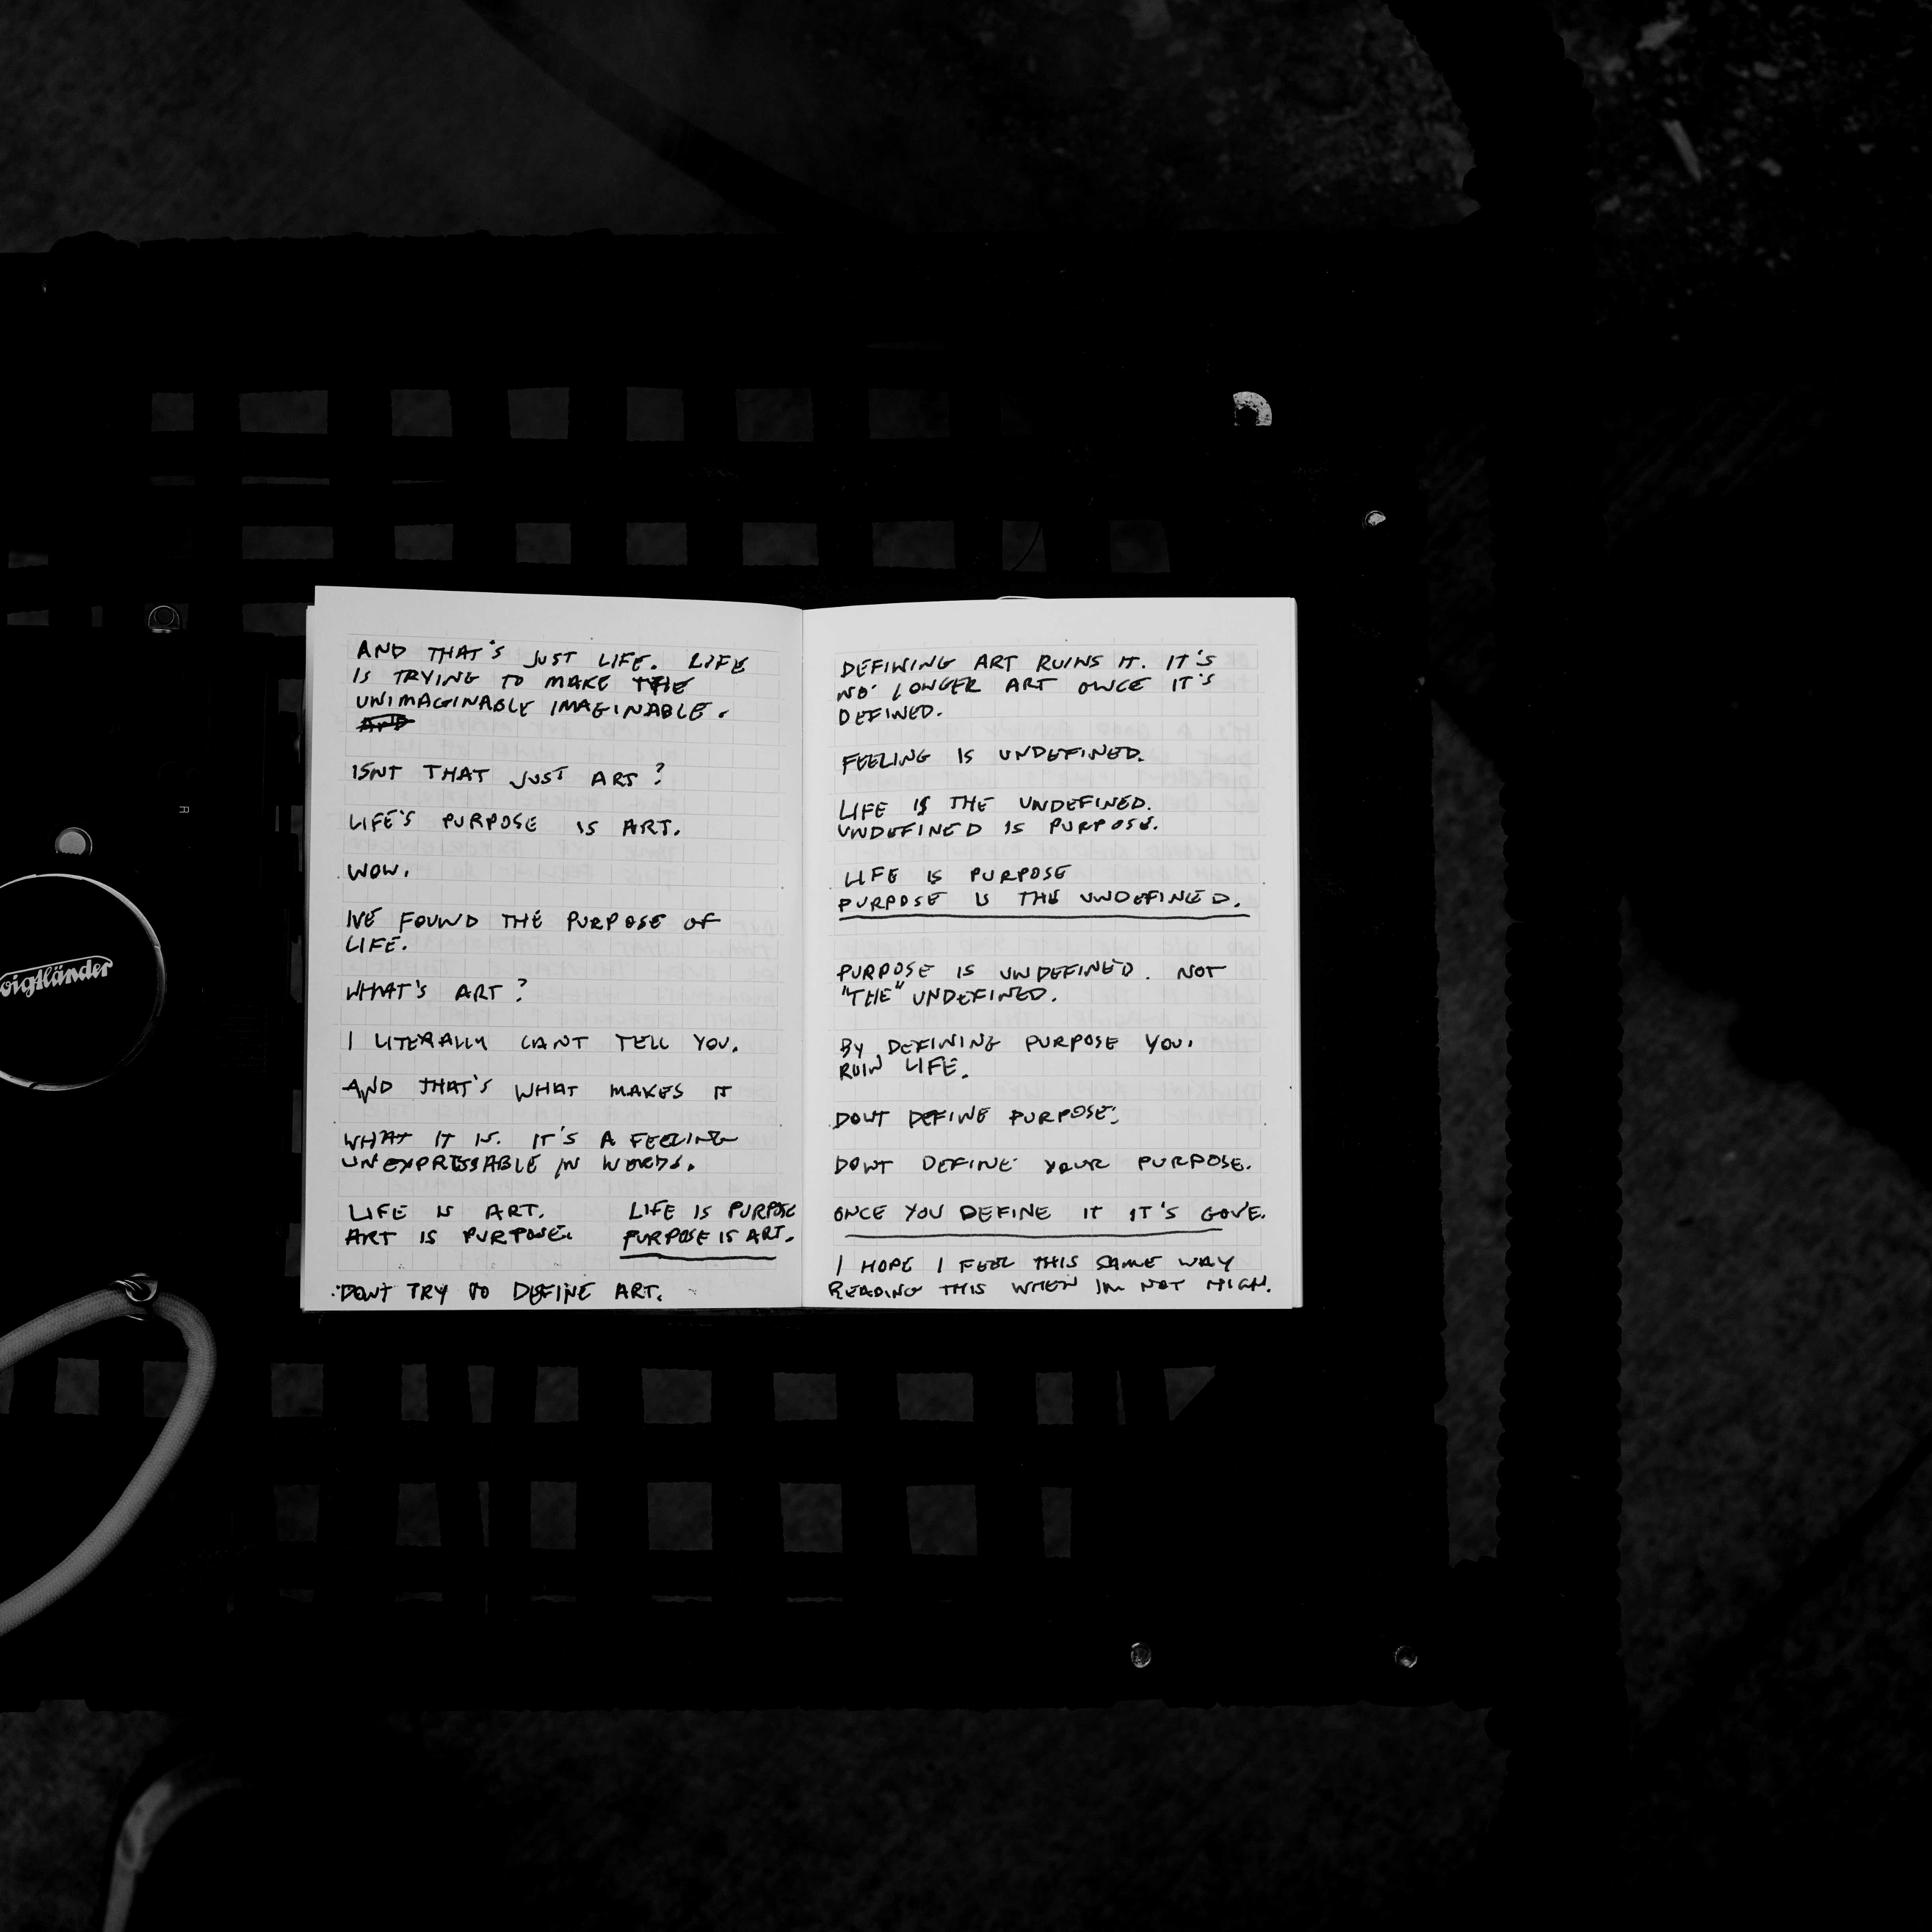 AND THAT'S JUST LIFE. LIFE
IS TRYING TO MAKE THE
UNIMAGINABLE IMAGINABLE.
ISNT THAT JUST ART?
LIFE'S PURPOSE IS ART.
WOW.
IVE FOUND THE PURPOSE OF
LIFE.
WHAT'S ART?
I LITERALLY CANT TELL YOU.
AND THAT'S WHAT MAKES IT
WHAT IT IS. IT'S A FEELING
UNEXPRESSABLE IN WORDS.
LIFE IS ART.
ART IS PURPOSE.
LIFE IS PURPOSE
PURPOSE IS ART.
DONT TRY TO DEFINE ART.
DEFINING ART RUINS IT. IT'S
NO LONGER ART ONCE IT'S
DEFINED.
FEELING IS UNDEFINED.
LIFE IS THE UNDEFINED.
UNDEFINED IS PURPOSE.
LIFE IS PURPOSE
PURPOSE IS THE UNDEFINED.
PURPOSE IS UNDEFINED. NOT
"THE" UNDEFINED.
BY DEFINING PURPOSE YOU
RUIN LIFE.
DONT DEFINE PURPOSE.
DONT DEFINE YOUR PURPOSE.
ONCE YOU DEFINE IT IT'S GONE.
I HOPE I FEEL THIS SAME WAY
READING THIS WHEN IM NOT HIGH.
oigtländer